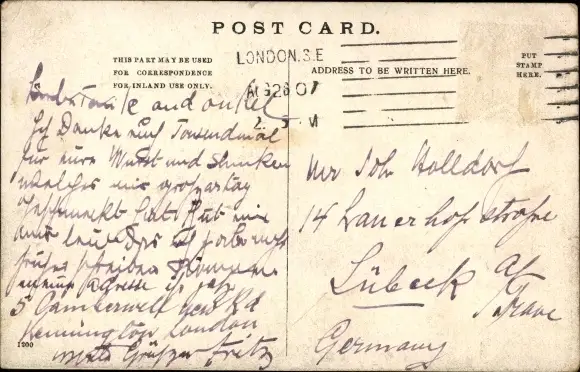 POST CARD.
THIS PART MAY BE USED
FOR CORRESPONDENCE
FOR INLAND USE ONLY.
LONDON. S.E
AUG 26 07
ADDRESS TO BE WRITTEN HERE.
PUT
STAMP
HERE.
Tante and onkel
Ich Danke euch Tousendmal
für eure Wurst und Shinken
welches mir grosartag
geschmeckt hat
mein adresse is jetz
5 Camberwell New Rd
Kennington London
Grüsse Fritz
1200
Mr Joh Holldorf
14 Lauerhofstrasse
Lübeck
Trave
Germany